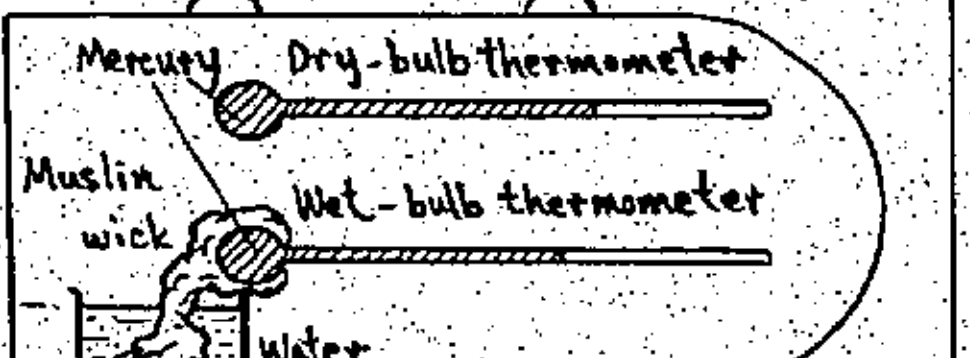 Mercury
Dry-bulb thermometer
Muslin
wick
Wet-bulb thermometer
Water